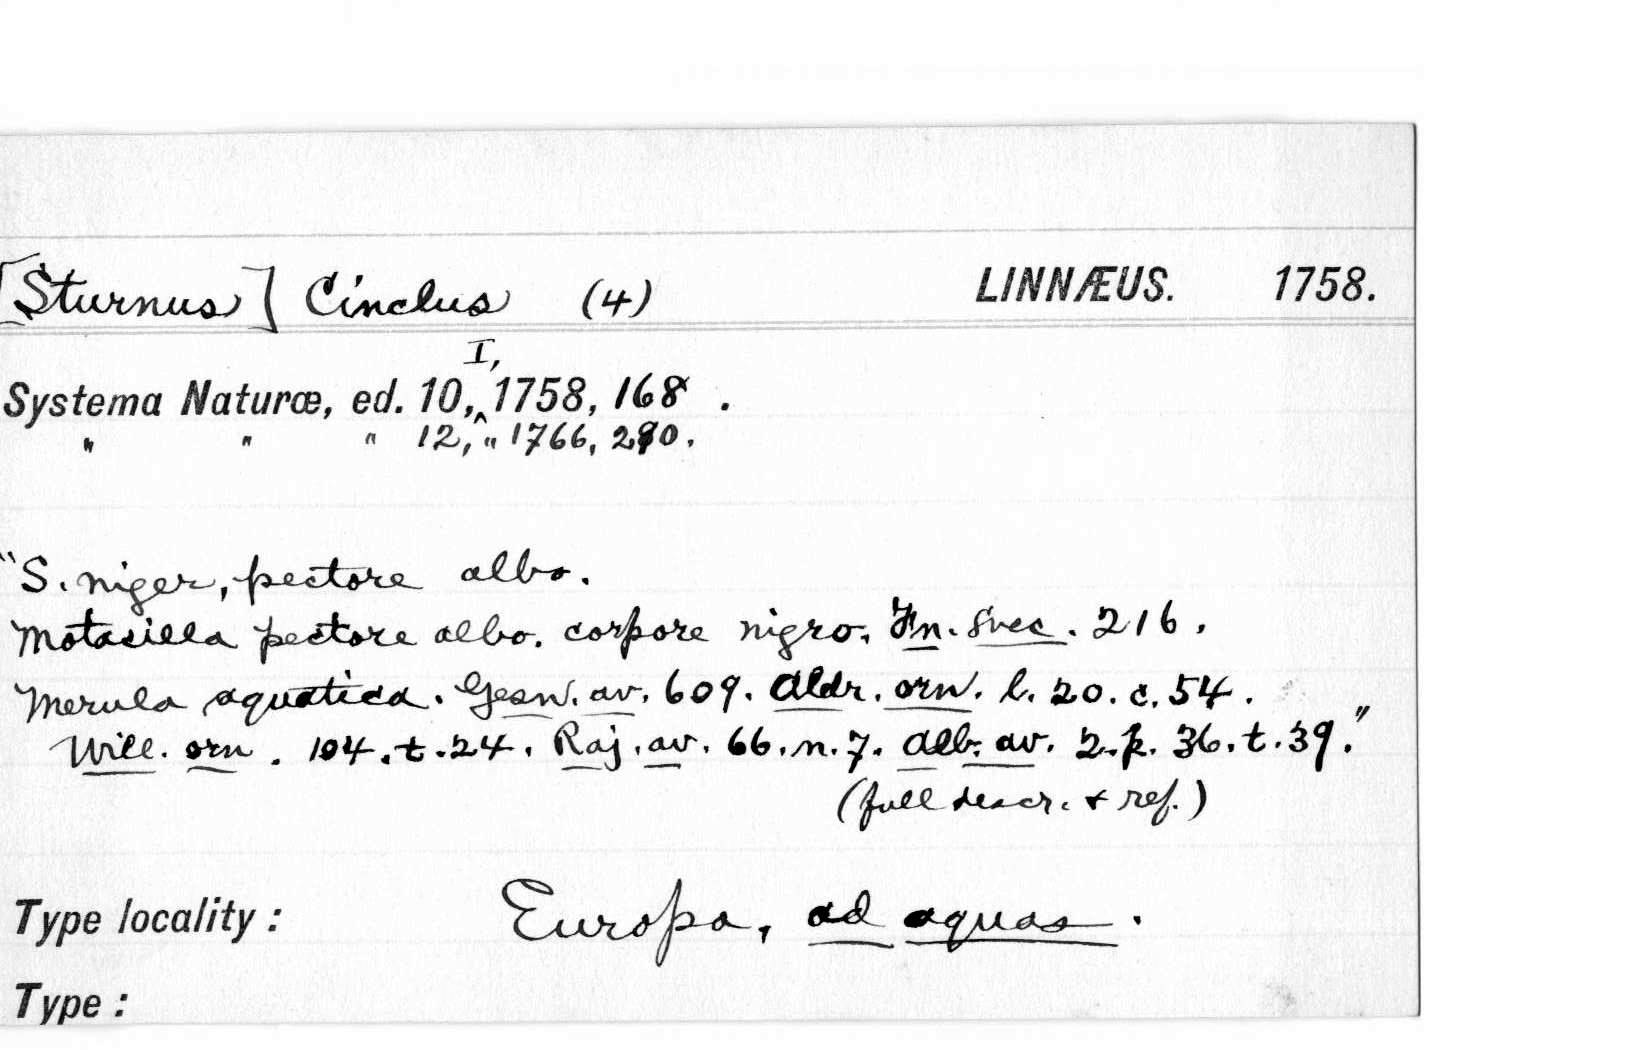 [Sturnus] Cinclus (4) LINNÆUS. 1758.
I,
Systema Naturæ, ed. 10,^ 1758, 168 .
" " " 12, " 1766, 290.
"S. niger, pectore albo.
Motacilla pectore albo. corpore nigro. Fn. Svec. 216.
Merula aquatica. Gesn. av. 609. Aldr. orn. l. 20. c. 54.
Will. orn. 104. t. 24. Raj. av. 66. n. 7. Alb. av. 2. p. 36. t. 39."
(full descr. & ref.)
Type locality: Europa, ad aquas.
Type: